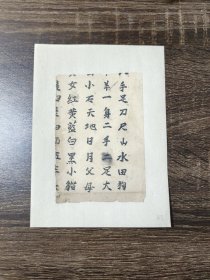 手足刀尺山水田狗
羊一身二手二足大
小石天地日月父母
女紅黃藍白黑小貓